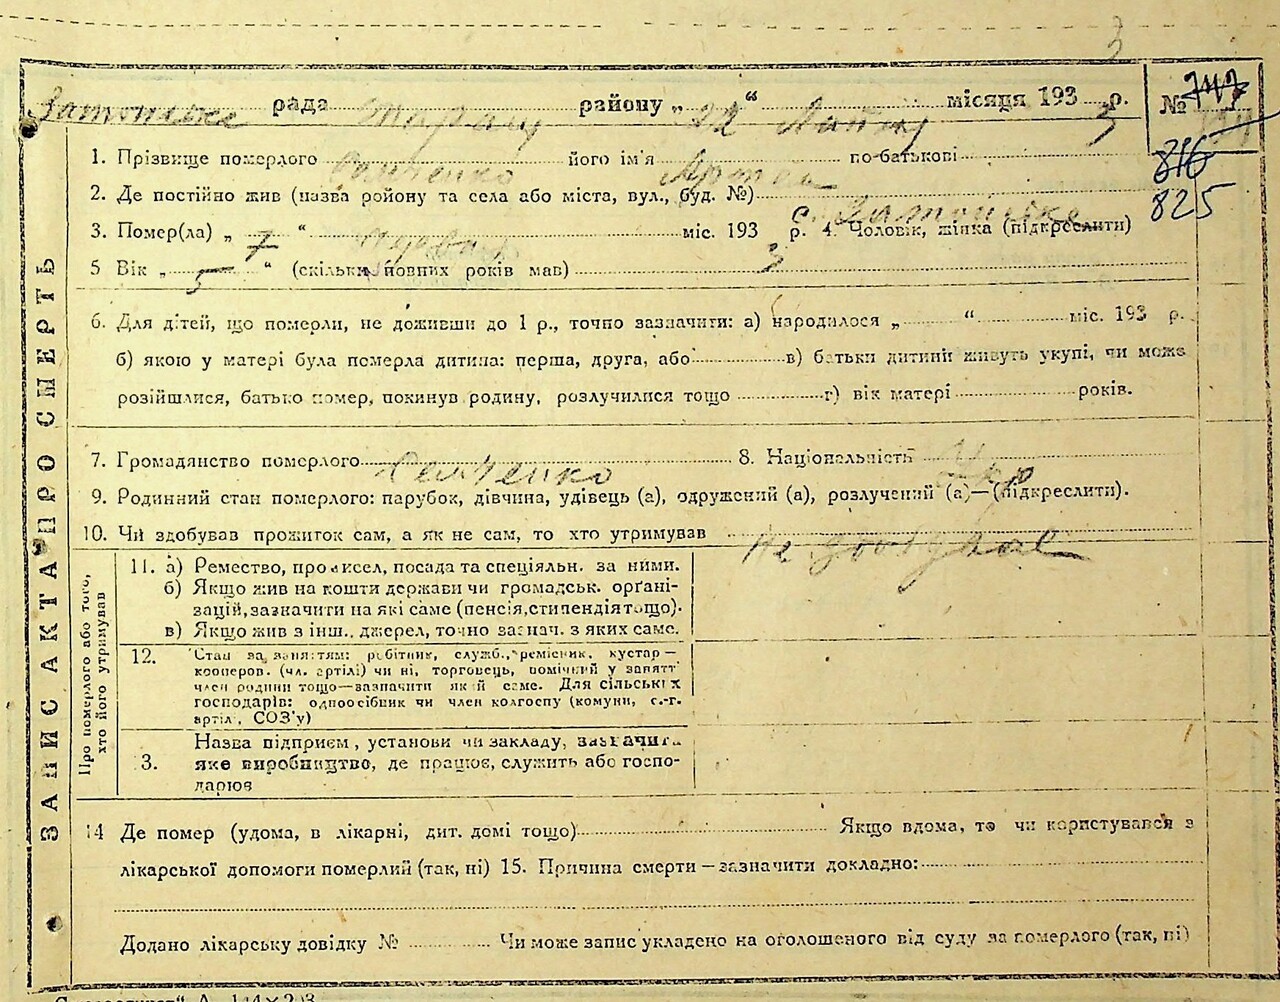 3
рада району „ 22 “ місяця 193 3 р. № 747
816
825
1. Прізвище померлого його ім'я Артем по-батькові
2. Де постійно жив (назва ройону та села або міста, вул., буд. №)
3. Помер(ла) „ 7 “ міс. 193 3 р. 4. Чоловік, жінка (підкреслити)
5 Вік „ 5 “ (скільки повних років мав)
6. Для дітей, що померли, не доживши до 1 р., точно зазначити: а) народилося „ “ міс. 193 р.
б) якою у матері була померла дитина: перша, друга, або в) батьки дитини живуть укупі, чи може
розійшлися, батько помер, покинув родину, розлучилися тощо г) вік матері років.
7. Громадянство померлого 8. Національність Укр
9. Родинний стан померлого: парубок, дівчина, удівець (а), одружений (а), розлучений (а)—(підкреслити).
10. Чи здобував прожиток сам, а як не сам, то хто утримував
Не
ЗАПИС АКТА ПРО СМЕРТЬ
Про померлого або того, хто його утримував
11. а) Ремество, промисел, посада та спеціяльн. за ними.
б) Якщо жив на кошти держави чи громадськ. орґані-
зацій, зазначити на які саме (пенсія, стипендія тощо).
в) Якщо жив з інш. джерел, точно зазнач. з яких саме.
12. Стан за заняттям: робітник, служб., ремісник, кустар—
кооперов. (чл. артілі) чи ні, торговець, помічний у занятт
член родини тощо—зазначити який саме. Для сільських
господарів: одноосібник чи член колгоспу (комуни, с.-г.
артіл, СОЗ'у)
3. Назва підприєм, установи чи закладу, зазначить
яке виробництво, де працює, служить або госпо-
дарює
14 Де помер (удома, в лікарні, дит. домі тощо) Якщо вдома, то чи користувався з
лікарської допомоги померлий (так, ні) 15. Причина смерти—зазначити докладно:
Додано лікарську довідку № Чи може запис укладено на оголошеного від суду за померлого (так, ні)